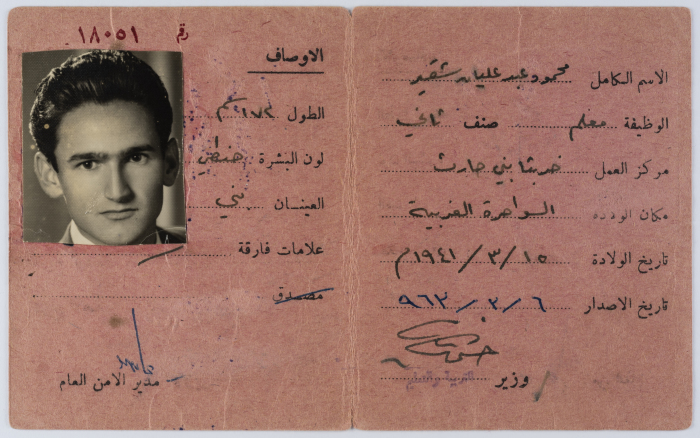 الاسم الكامل محمود عبد عليان شقير
الوظيفة معلم صنف ثاني
مركز العمل خربثا بني حارث
مكان الولادة السواحرة الغربية
تاريخ الولادة ١٥ / ٣ / ١٩٤١م
تاريخ الاصدار ٦ / ٣ / ٩٦٣
وزير
رقم ١٨٠٥١
الاوصاف
الطول ١٧٢ سم
لون البشرة حنطي
العينان بني
علامات فارقة
مصدق
مدير الامن العام